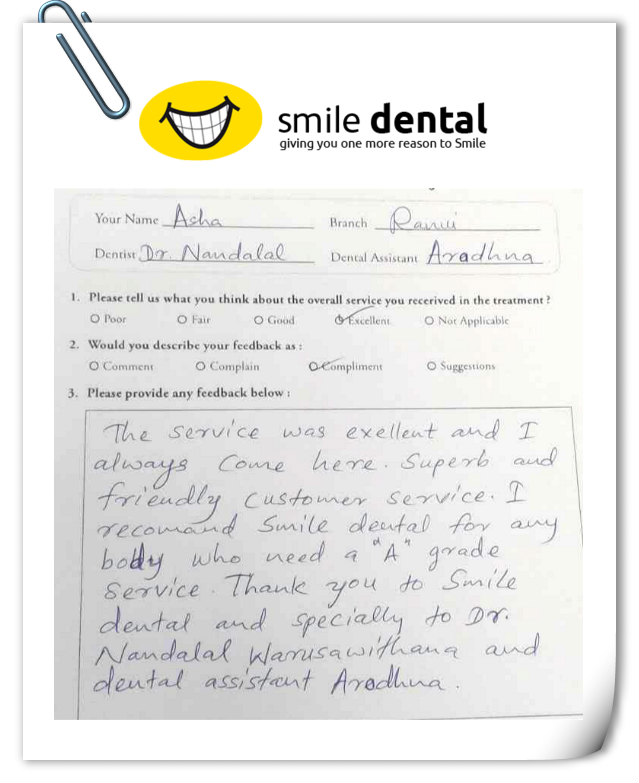 smile dental
giving you one more reason to Smile
Your Name Asha Branch Ranui
Dentist Dr. Nandalal Dental Assistant Aradhna
1. Please tell us what you think about the overall service you recerived in the treatment ?
Poor Fair Good Excellent Not Applicable
2. Would you describe your feedback as :
Comment Complain Compliment Suggestions
3. Please provide any feedback below :
The service was exellent and I
always come here. Superb and
friendly customer service. I
recomand Smile dental for any
body who need a "A" grade
service. Thank you to Smile
dental and specially to Dr.
Nandalal Warusawithana and
dental assistant Aradhna.